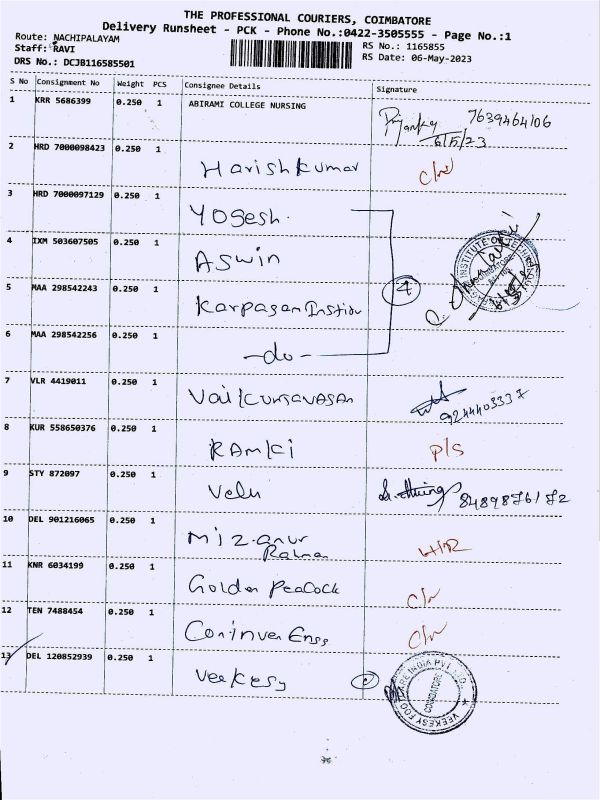 THE PROFESSIONAL COURIERS, COIMBATORE
Delivery Runsheet - PCK - Phone No.:0422-3505555 - Page No.:1
Route: NACHIPALAYAM
Staff: RAVI
DRS No.: DCJB116585501
RS No.: 1165855
RS Date: 06-May-2023
S No Consignment No Weight PCS Consignee Details Signature
1 KRR 5686399 0.250 1 ABIRAMI COLLEGE NURSING 7639464106
6/5/23
2 HRD 7000098423 0.250 1 Harishkumar
3 HRD 7000097129 0.250 1 Yogesh.
4 IXM 503607505 0.250 1 Aswin
5 MAA 298542243 0.250 1 Karpagam Institu
4
6 MAA 298542256 0.250 1 -do-
7 VLR 4419011 0.250 1
9244403337
8 KUR 558650376 0.250 1 Ramki P/S
9 STY 872097 0.250 1 Velu 8489876172
10 DEL 901216065 0.250 1 Mizanur
Rahman
11 KNR 6034199 0.250 1 Golden Peacock
12 TEN 7488454 0.250 1
13 DEL 120852939 0.250 1 Veekesy
VEEKESY FOOTCARE INDIA PVT LTD
COIMBATORE